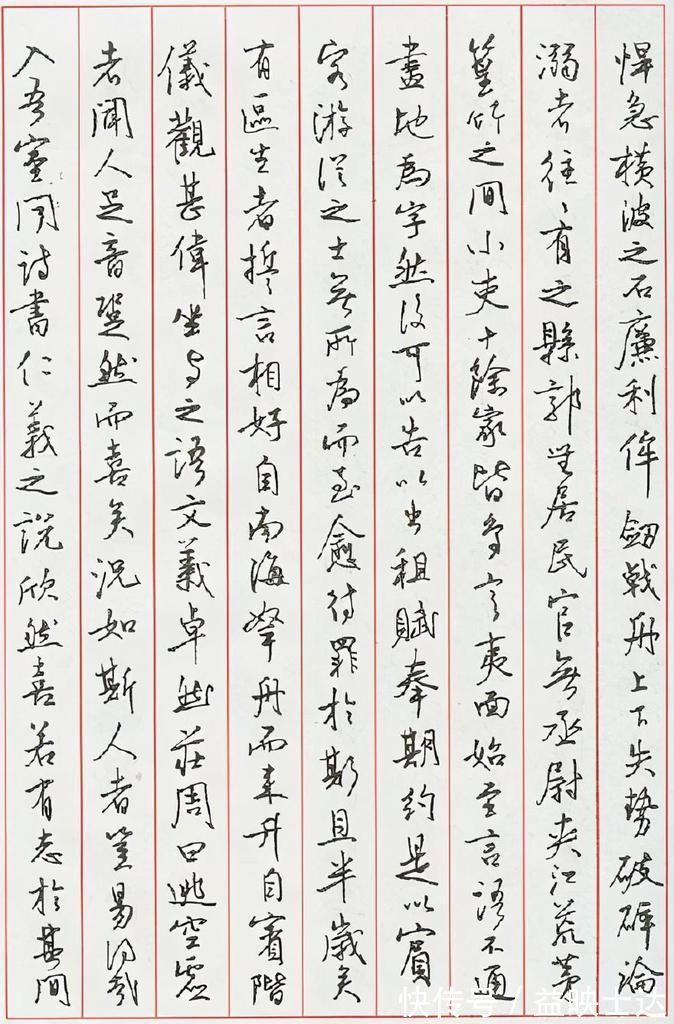 悍急橫波之石廉利侔劒戟舟上下失勢破碎淪
溺者往〻有之縣郭無居民官無丞尉夾江荒茅
篁竹之間小吏十餘家皆鳥言夷面始至言語不通
畫地為字然後可以告以出租賦奉期約是以賓
客游從之士無所為而至愈待罪於斯且半歲矣
有區生者誓言相好自南海挐舟而來升自賓階
儀觀甚偉坐與之語文義卓然莊周曰逃空虛
者聞人足音跫然而喜矣況如斯人者豈易得哉
入吾室聞詩書仁義之說欣然喜若有志於其間
快传号 / 益映士达